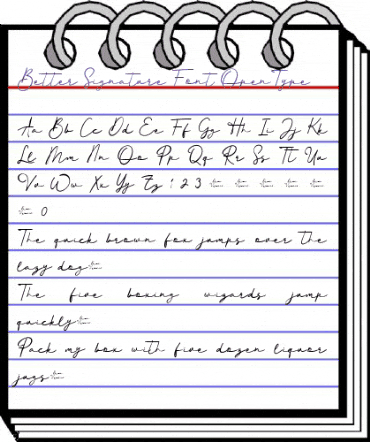 Better Signature Font OpenType
Aa Bb Cc Dd Ee Ff Gg Hh Ii Jj Kk
Ll Mm Nn Oo Pp Qq Rr Ss Tt Uu
Vv Ww Xx Yy Zz 1 2 3
0
The quick brown fox jumps over the
lazy dog
The five boxing wizards jump
quickly
Pack my box with five dozen liquor
jugs